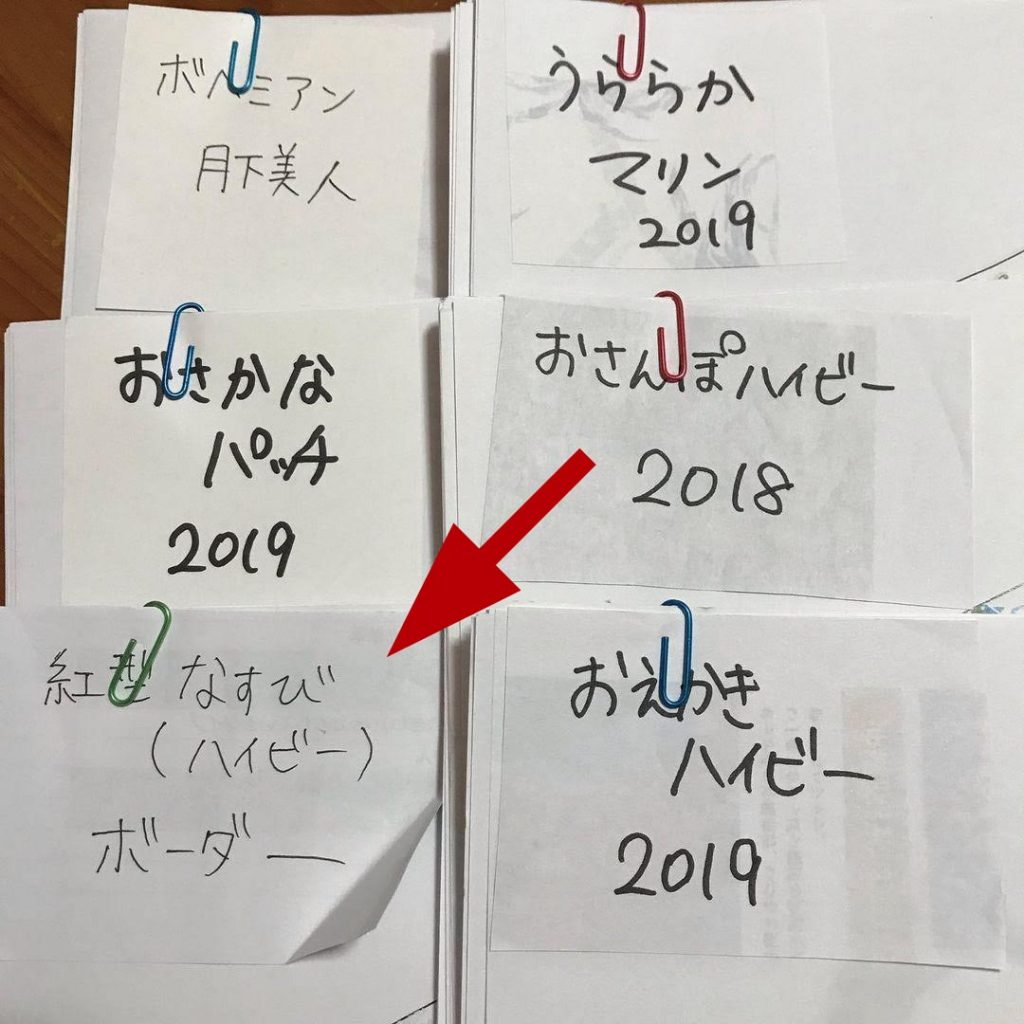 ボヘミアン
月下美人
うららか
マリン
2019
おさかな
パッチ
2019
おさんぽハイビー
2018
紅型 なすび
(ハイビー)
ボーダー
おえかき
ハイビー
2019